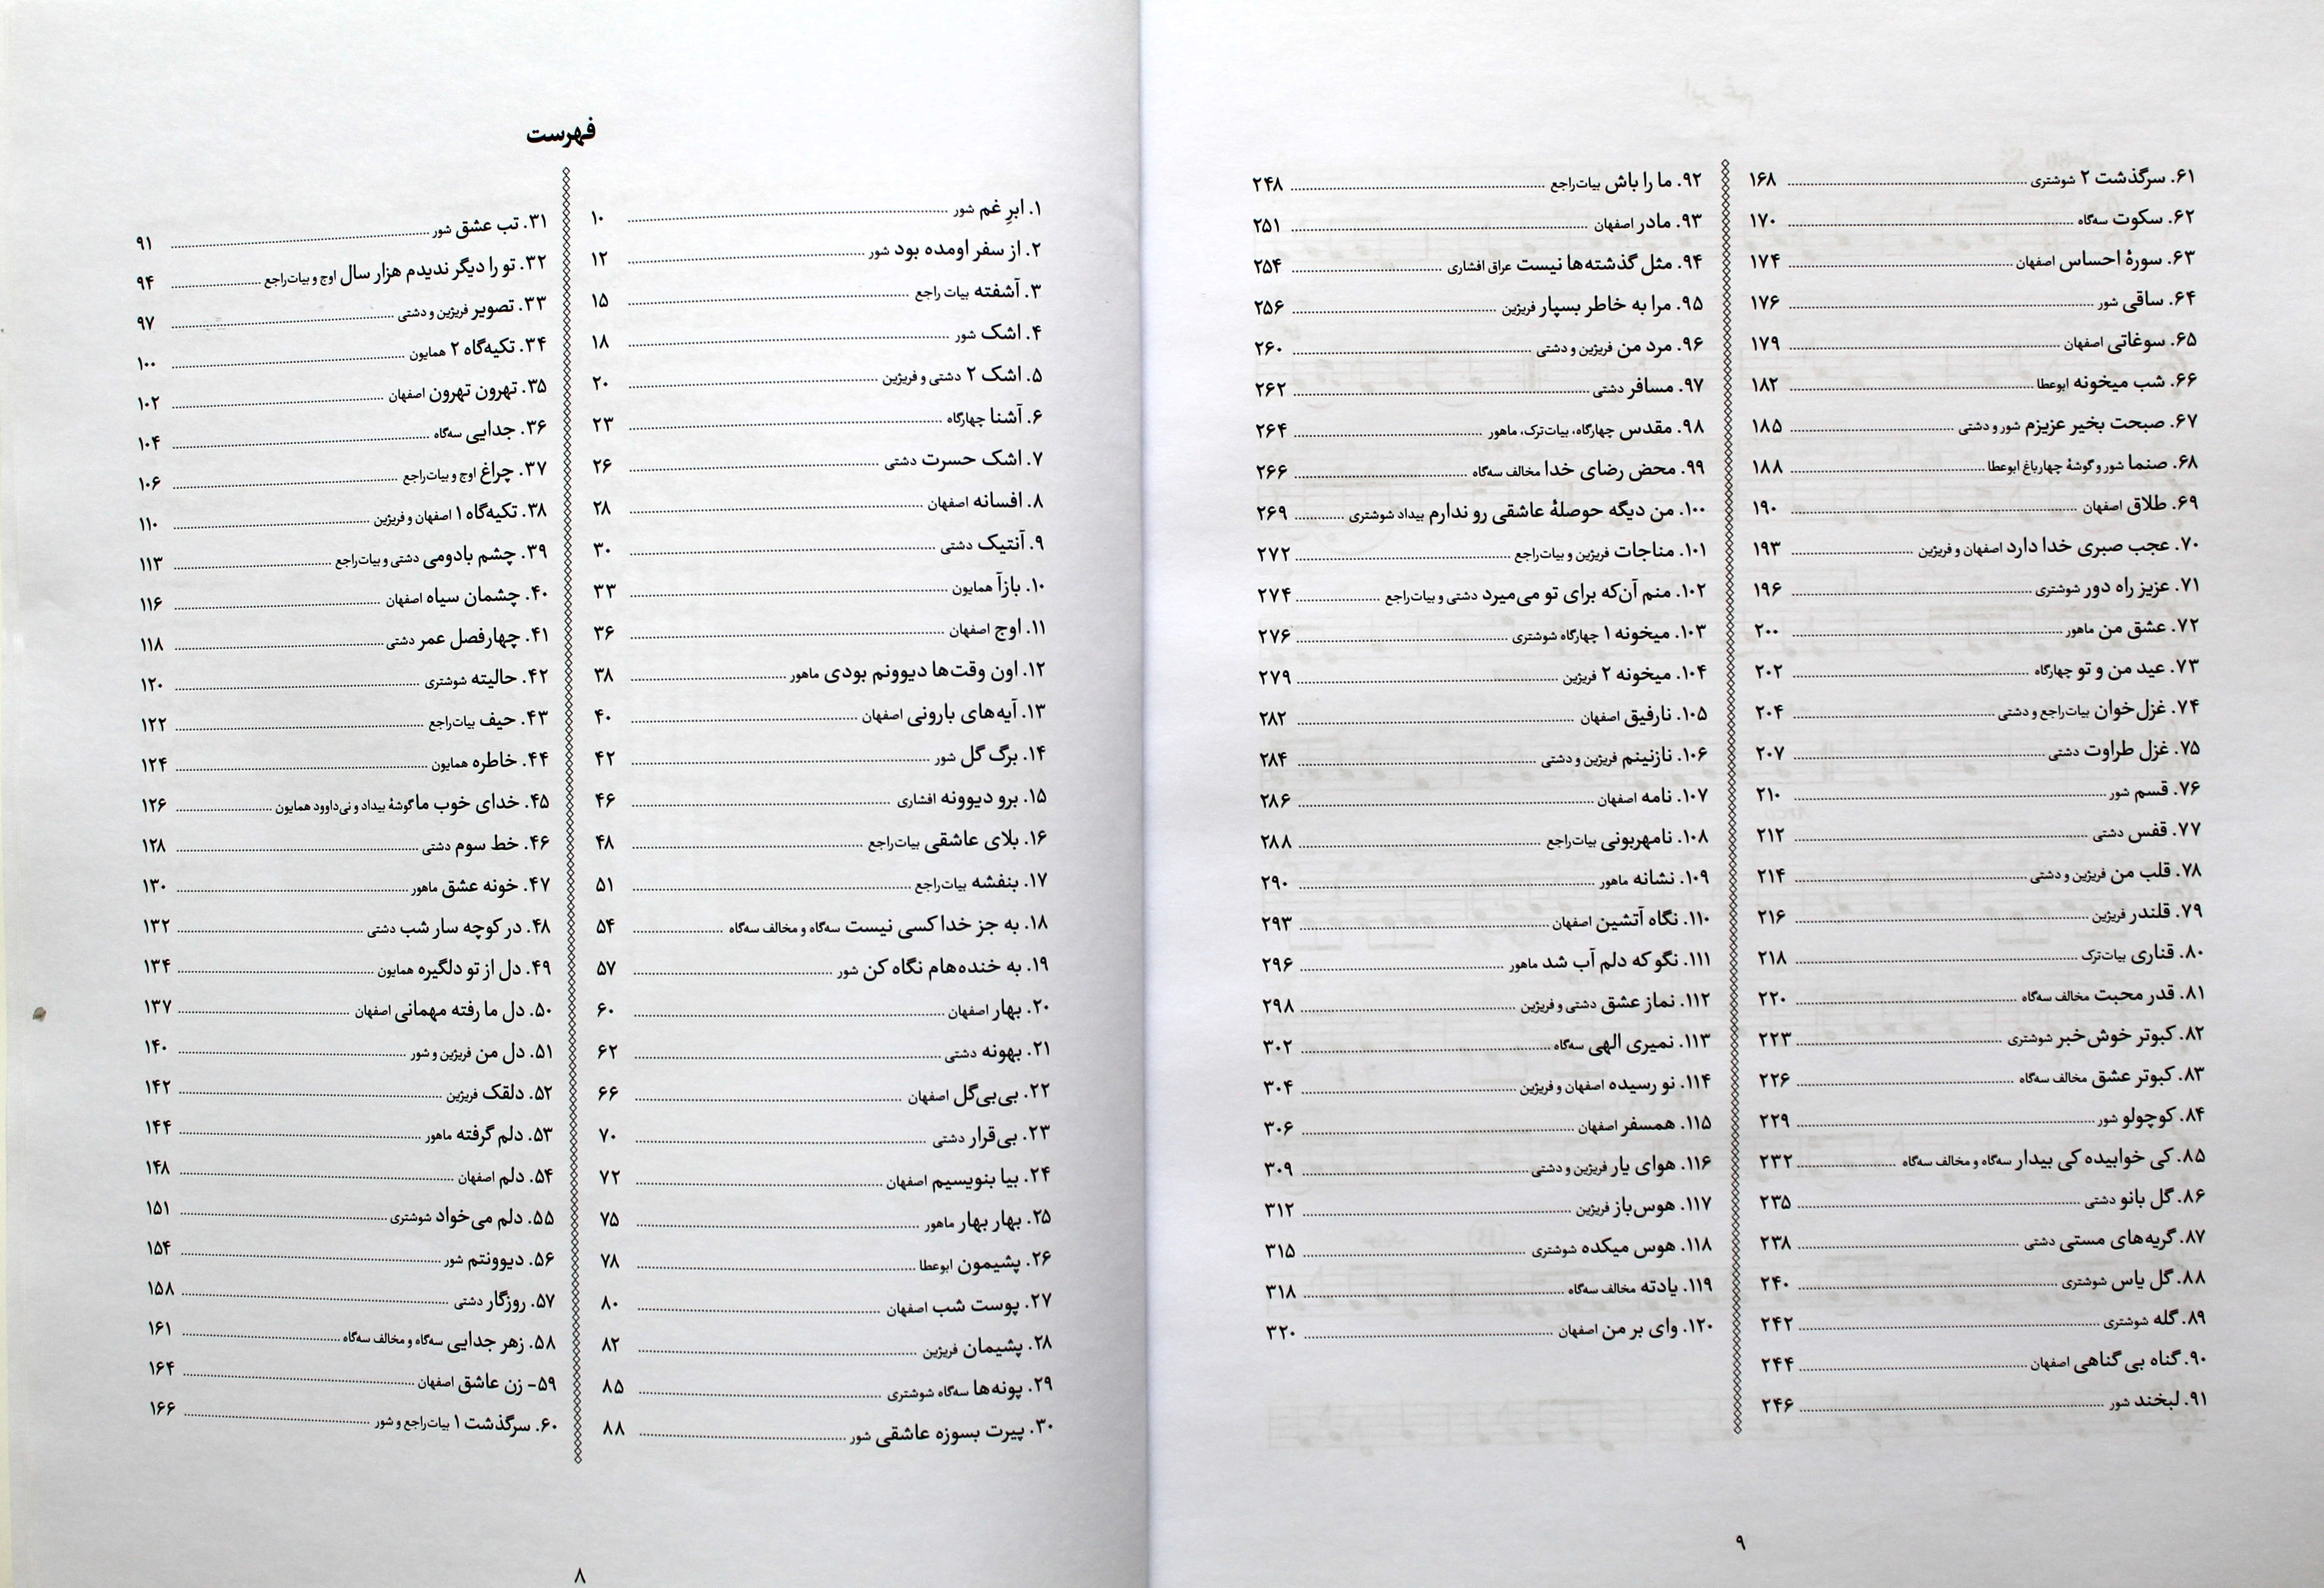 فهرست
۱. ابرِ غم شور ........ ۱۰
۲. از سفر اومده بود شور ........ ۱۲
۳. آشفته بیات راجع ........ ۱۵
۴. اشک شور ........ ۱۸
۵. اشک ۲ دشتی و فریژین ........ ۲۰
۶. آشنا چهارگاه ........ ۲۳
۷. اشک حسرت دشتی ........ ۲۶
۸. افسانه اصفهان ........ ۲۸
۹. آنتیک دشتی ........ ۳۰
۱۰. بازآ همایون ........ ۳۳
۱۱. اوج اصفهان ........ ۳۶
۱۲. اون وقت‌ها دیوونم بودی ماهور ........ ۳۸
۱۳. آیه‌های بارونی اصفهان ........ ۴۰
۱۴. برگ گل شور ........ ۴۲
۱۵. برو دیوونه افشاری ........ ۴۶
۱۶. بلای عاشقی بیات‌راجع ........ ۴۸
۱۷. بنفشه بیات‌راجع ........ ۵۱
۱۸. به جز خدا کسی نیست سه‌گاه و مخالف سه‌گاه ........ ۵۴
۱۹. به خنده‌هام نگاه کن شور ........ ۵۷
۲۰. بهار اصفهان ........ ۶۰
۲۱. بهونه دشتی ........ ۶۲
۲۲. بی‌بی‌گل اصفهان ........ ۶۶
۲۳. بی‌قرار دشتی ........ ۷۰
۲۴. بیا بنویسیم اصفهان ........ ۷۲
۲۵. بهار بهار ماهور ........ ۷۵
۲۶. پشیمون ابوعطا ........ ۷۸
۲۷. پوست شب اصفهان ........ ۸۰
۲۸. پشیمان فریژین ........ ۸۲
۲۹. پونه‌ها سه‌گاه شوشتری ........ ۸۵
۳۰. پیرت بسوزه عاشقی شور ........ ۸۸
۳۱. تب عشق شور ........ ۹۱
۳۲. تو را دیگر ندیدم هزار سال اوج و بیات‌راجع ........ ۹۴
۳۳. تصویر فریژین و دشتی ........ ۹۷
۳۴. تکیه‌گاه ۲ همایون ........ ۱۰۰
۳۵. تهرون تهرون اصفهان ........ ۱۰۲
۳۶. جدایی سه‌گاه ........ ۱۰۴
۳۷. چراغ اوج و بیات‌راجع ........ ۱۰۶
۳۸. تکیه‌گاه ۱ اصفهان و فریژین ........ ۱۱۰
۳۹. چشم بادومی دشتی و بیات‌راجع ........ ۱۱۳
۴۰. چشمان سیاه اصفهان ........ ۱۱۶
۴۱. چهارفصل عمر دشتی ........ ۱۱۸
۴۲. حالیته شوشتری ........ ۱۲۰
۴۳. حیف بیات‌راجع ........ ۱۲۲
۴۴. خاطره همایون ........ ۱۲۴
۴۵. خدای خوب ما گوشهٔ بیداد و نی‌داوود همایون ........ ۱۲۶
۴۶. خط سوم دشتی ........ ۱۲۸
۴۷. خونه عشق ماهور ........ ۱۳۰
۴۸. در کوچه سار شب دشتی ........ ۱۳۲
۴۹. دل از تو دلگیره همایون ........ ۱۳۴
۵۰. دل ما رفته مهمانی اصفهان ........ ۱۳۷
۵۱. دل من فریژین و شور ........ ۱۴۰
۵۲. دلقک فریژین ........ ۱۴۲
۵۳. دلم گرفته ماهور ........ ۱۴۴
۵۴. دلم اصفهان ........ ۱۴۸
۵۵. دلم می‌خواد شوشتری ........ ۱۵۱
۵۶. دیوونتم شور ........ ۱۵۴
۵۷. روزگار دشتی ........ ۱۵۸
۵۸. زهر جدایی سه‌گاه و مخالف سه‌گاه ........ ۱۶۱
۵۹- زن عاشق اصفهان ........ ۱۶۴
۶۰. سرگذشت ۱ بیات‌راجع و شور ........ ۱۶۶
۸
۶۱. سرگذشت ۲ شوشتری ........ ۱۶۸
۶۲. سکوت سه‌گاه ........ ۱۷۰
۶۳. سورهٔ احساس اصفهان ........ ۱۷۴
۶۴. ساقی شور ........ ۱۷۶
۶۵. سوغاتی اصفهان ........ ۱۷۹
۶۶. شب میخونه ابوعطا ........ ۱۸۲
۶۷. صبحت بخیر عزیزم شور و دشتی ........ ۱۸۵
۶۸. صنما شور و گوشهٔ چهارباغ ابوعطا ........ ۱۸۸
۶۹. طلاق اصفهان ........ ۱۹۰
۷۰. عجب صبری خدا دارد اصفهان و فریژین ........ ۱۹۳
۷۱. عزیز راه دور شوشتری ........ ۱۹۶
۷۲. عشق من ماهور ........ ۲۰۰
۷۳. عید من و تو چهارگاه ........ ۲۰۲
۷۴. غزل‌خوان بیات‌راجع و دشتی ........ ۲۰۴
۷۵. غزل طراوت دشتی ........ ۲۰۷
۷۶. قسم شور ........ ۲۱۰
۷۷. قفس دشتی ........ ۲۱۲
۷۸. قلب من فریژین و دشتی ........ ۲۱۴
۷۹. قلندر فریژین ........ ۲۱۶
۸۰. قناری بیات‌ترک ........ ۲۱۸
۸۱. قدر محبت مخالف سه‌گاه ........ ۲۲۰
۸۲. کبوتر خوش‌خبر شوشتری ........ ۲۲۳
۸۳. کبوتر عشق مخالف سه‌گاه ........ ۲۲۶
۸۴. کوچولو شور ........ ۲۲۹
۸۵. کی خوابیده کی بیدار سه‌گاه و مخالف سه‌گاه ........ ۲۳۲
۸۶. گل بانو دشتی ........ ۲۳۵
۸۷. گریه‌های مستی دشتی ........ ۲۳۸
۸۸. گل یاس شوشتری ........ ۲۴۰
۸۹. گله شوشتری ........ ۲۴۲
۹۰. گناه بی گناهی اصفهان ........ ۲۴۴
۹۱. لبخند شور ........ ۲۴۶
۹۲. ما را باش بیات‌راجع ........ ۲۴۸
۹۳. مادر اصفهان ........ ۲۵۱
۹۴. مثل گذشته‌ها نیست عراق افشاری ........ ۲۵۴
۹۵. مرا به خاطر بسپار فریژین ........ ۲۵۶
۹۶. مرد من فریژین و دشتی ........ ۲۶۰
۹۷. مسافر دشتی ........ ۲۶۲
۹۸. مقدس چهارگاه، بیات‌ترک، ماهور ........ ۲۶۴
۹۹. محض رضای خدا مخالف سه‌گاه ........ ۲۶۶
۱۰۰. من دیگه حوصلهٔ عاشقی رو ندارم بیداد شوشتری ........ ۲۶۹
۱۰۱. مناجات فریژین و بیات‌راجع ........ ۲۷۲
۱۰۲. منم آن‌که برای تو می‌میرد دشتی و بیات‌راجع ........ ۲۷۴
۱۰۳. میخونه ۱ چهارگاه شوشتری ........ ۲۷۶
۱۰۴. میخونه ۲ فریژین ........ ۲۷۹
۱۰۵. نارفیق اصفهان ........ ۲۸۲
۱۰۶. نازنینم فریژین و دشتی ........ ۲۸۴
۱۰۷. نامه اصفهان ........ ۲۸۶
۱۰۸. نامهربونی بیات‌راجع ........ ۲۸۸
۱۰۹. نشانه ماهور ........ ۲۹۰
۱۱۰. نگاه آتشین اصفهان ........ ۲۹۳
۱۱۱. نگو که دلم آب شد ماهور ........ ۲۹۶
۱۱۲. نماز عشق دشتی و فریژین ........ ۲۹۸
۱۱۳. نمیری الهی سه‌گاه ........ ۳۰۲
۱۱۴. نو رسیده اصفهان و فریژین ........ ۳۰۴
۱۱۵. همسفر اصفهان ........ ۳۰۶
۱۱۶. هوای یار فریژین و دشتی ........ ۳۰۹
۱۱۷. هوس‌باز فریژین ........ ۳۱۲
۱۱۸. هوس میکده شوشتری ........ ۳۱۵
۱۱۹. یادته مخالف سه‌گاه ........ ۳۱۸
۱۲۰. وای بر من اصفهان ........ ۳۲۰
۹